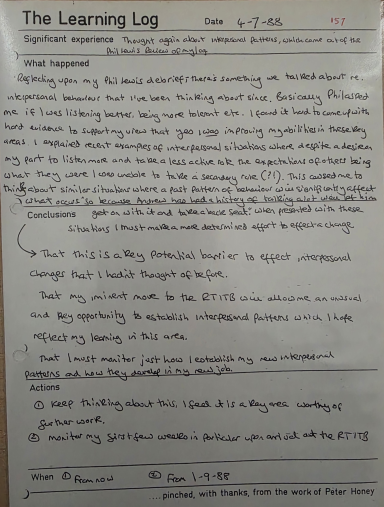 The Learning Log Date 4-7-88 157
Significant experience Thought again about interpersonal patterns, which came out of the
Phil Lewis Review of my log
What happened
Reflecting upon my Phil Lewis debrief there's something we talked about re.
interpersonal behaviour that I've been thinking about since. Basically Phil asked
me if I was listening better, being more tolerant etc. I found it hard to come up with
hard evidence to support my view that yes I was improving my abilities in these key
areas. I explained recent examples of interpersonal situations where despite a desire on
my part to listen more and take a less active role the expectations of others being
what they were I was unable to take a secondary role (?!). This caused me to
think about similar situations where a past pattern of behaviour will significantly affect
what occurs 'so because Andrew has had a history of talking a lot we'll let him
get on with it and take a back seat'. when presented with these
Conclusions
situations I must make a more determined effort to effect a change
That this is a key potential barrier to effect interpersonal
changes that I hadn't thought of before.
That my iminent move to the RTITB will allow me an unusual
and key opportunity to establish interpersonal patterns which I hope
reflect my learning in this area.
That I must monitor just how I establish my new interpersonal
patterns and how they develop in my new job.
Actions
① Keep thinking about this. I feel it is a key area worthy of
further work.
② monitor my first few weeks in particular upon arrival at the RTITB
When ① From now ② From 1-9-88
....pinched, with thanks, from the work of Peter Honey